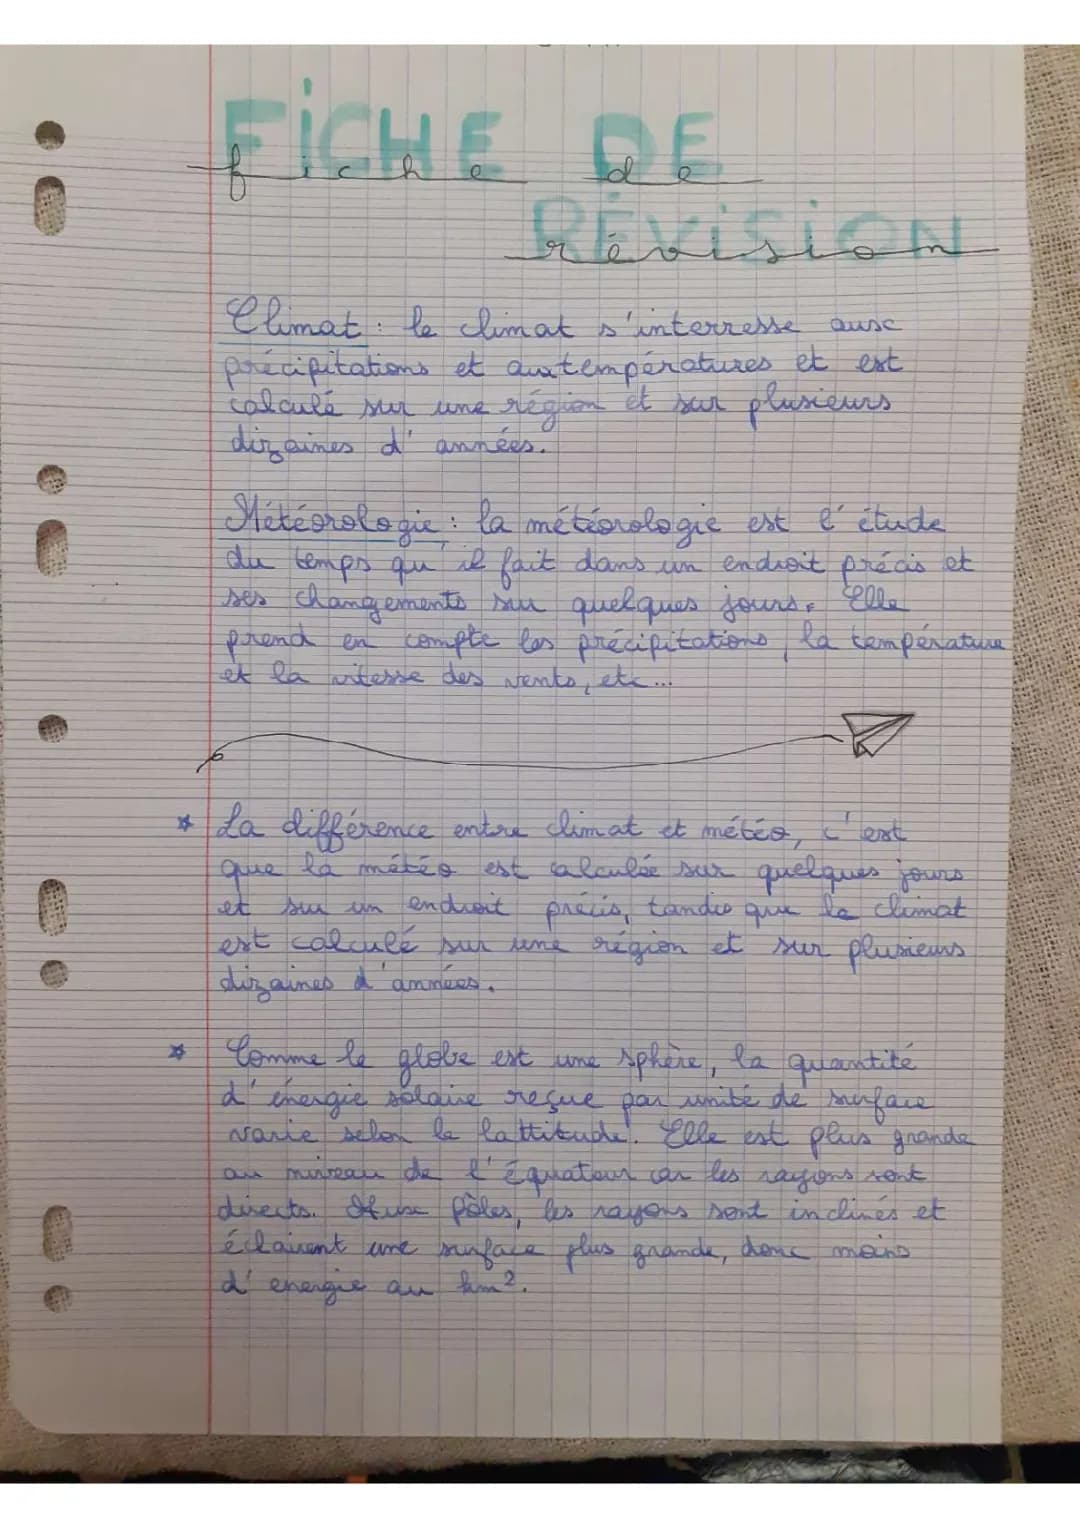 FICHE DE
fiche de
RÉVISION
révision
Climat : le climat s'interresse aux
précipitations et aux températures et est
calculé sur une région et sur plusieurs
dizaines d'années.
Météorologie : la météorologie est l'étude
du temps qu'il fait dans un endroit précis et
ses changements sur quelques jours. Elle
prend en compte les précipitations, la température
et la vitesse des vents, etc...
* La différence entre climat et météo, c'est
que la météo est calculée sur quelques jours
et sur un endroit précis, tandis que le climat
est calculé sur une région et sur plusieurs
dizaines d'années.
* Comme le globe est une sphère, la quantité
d'énergie solaire reçue par unité de surface
varie selon la lattitude. Elle est plus grande
au niveau de l'Équateur car les rayons sont
directs. Aux pôles, les rayons sont inclinés et
éclairent une surface plus grande, donc moins
d'énergie au km².